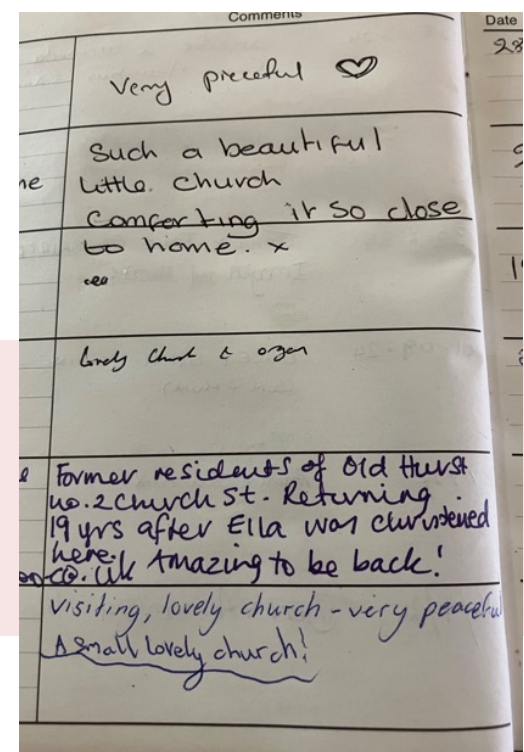 Comments
Date
28
Very pieceful ♡
Such a beautiful
little church
Comforting it so close
to home. x
lovely church & organ
Former residents of Old Hurst
no. 2 Church St. Returning
19 yrs after Ella was christened
here.
co.uk Amazing to be back!
visiting, lovely church - very peaceful
A small lovely church!